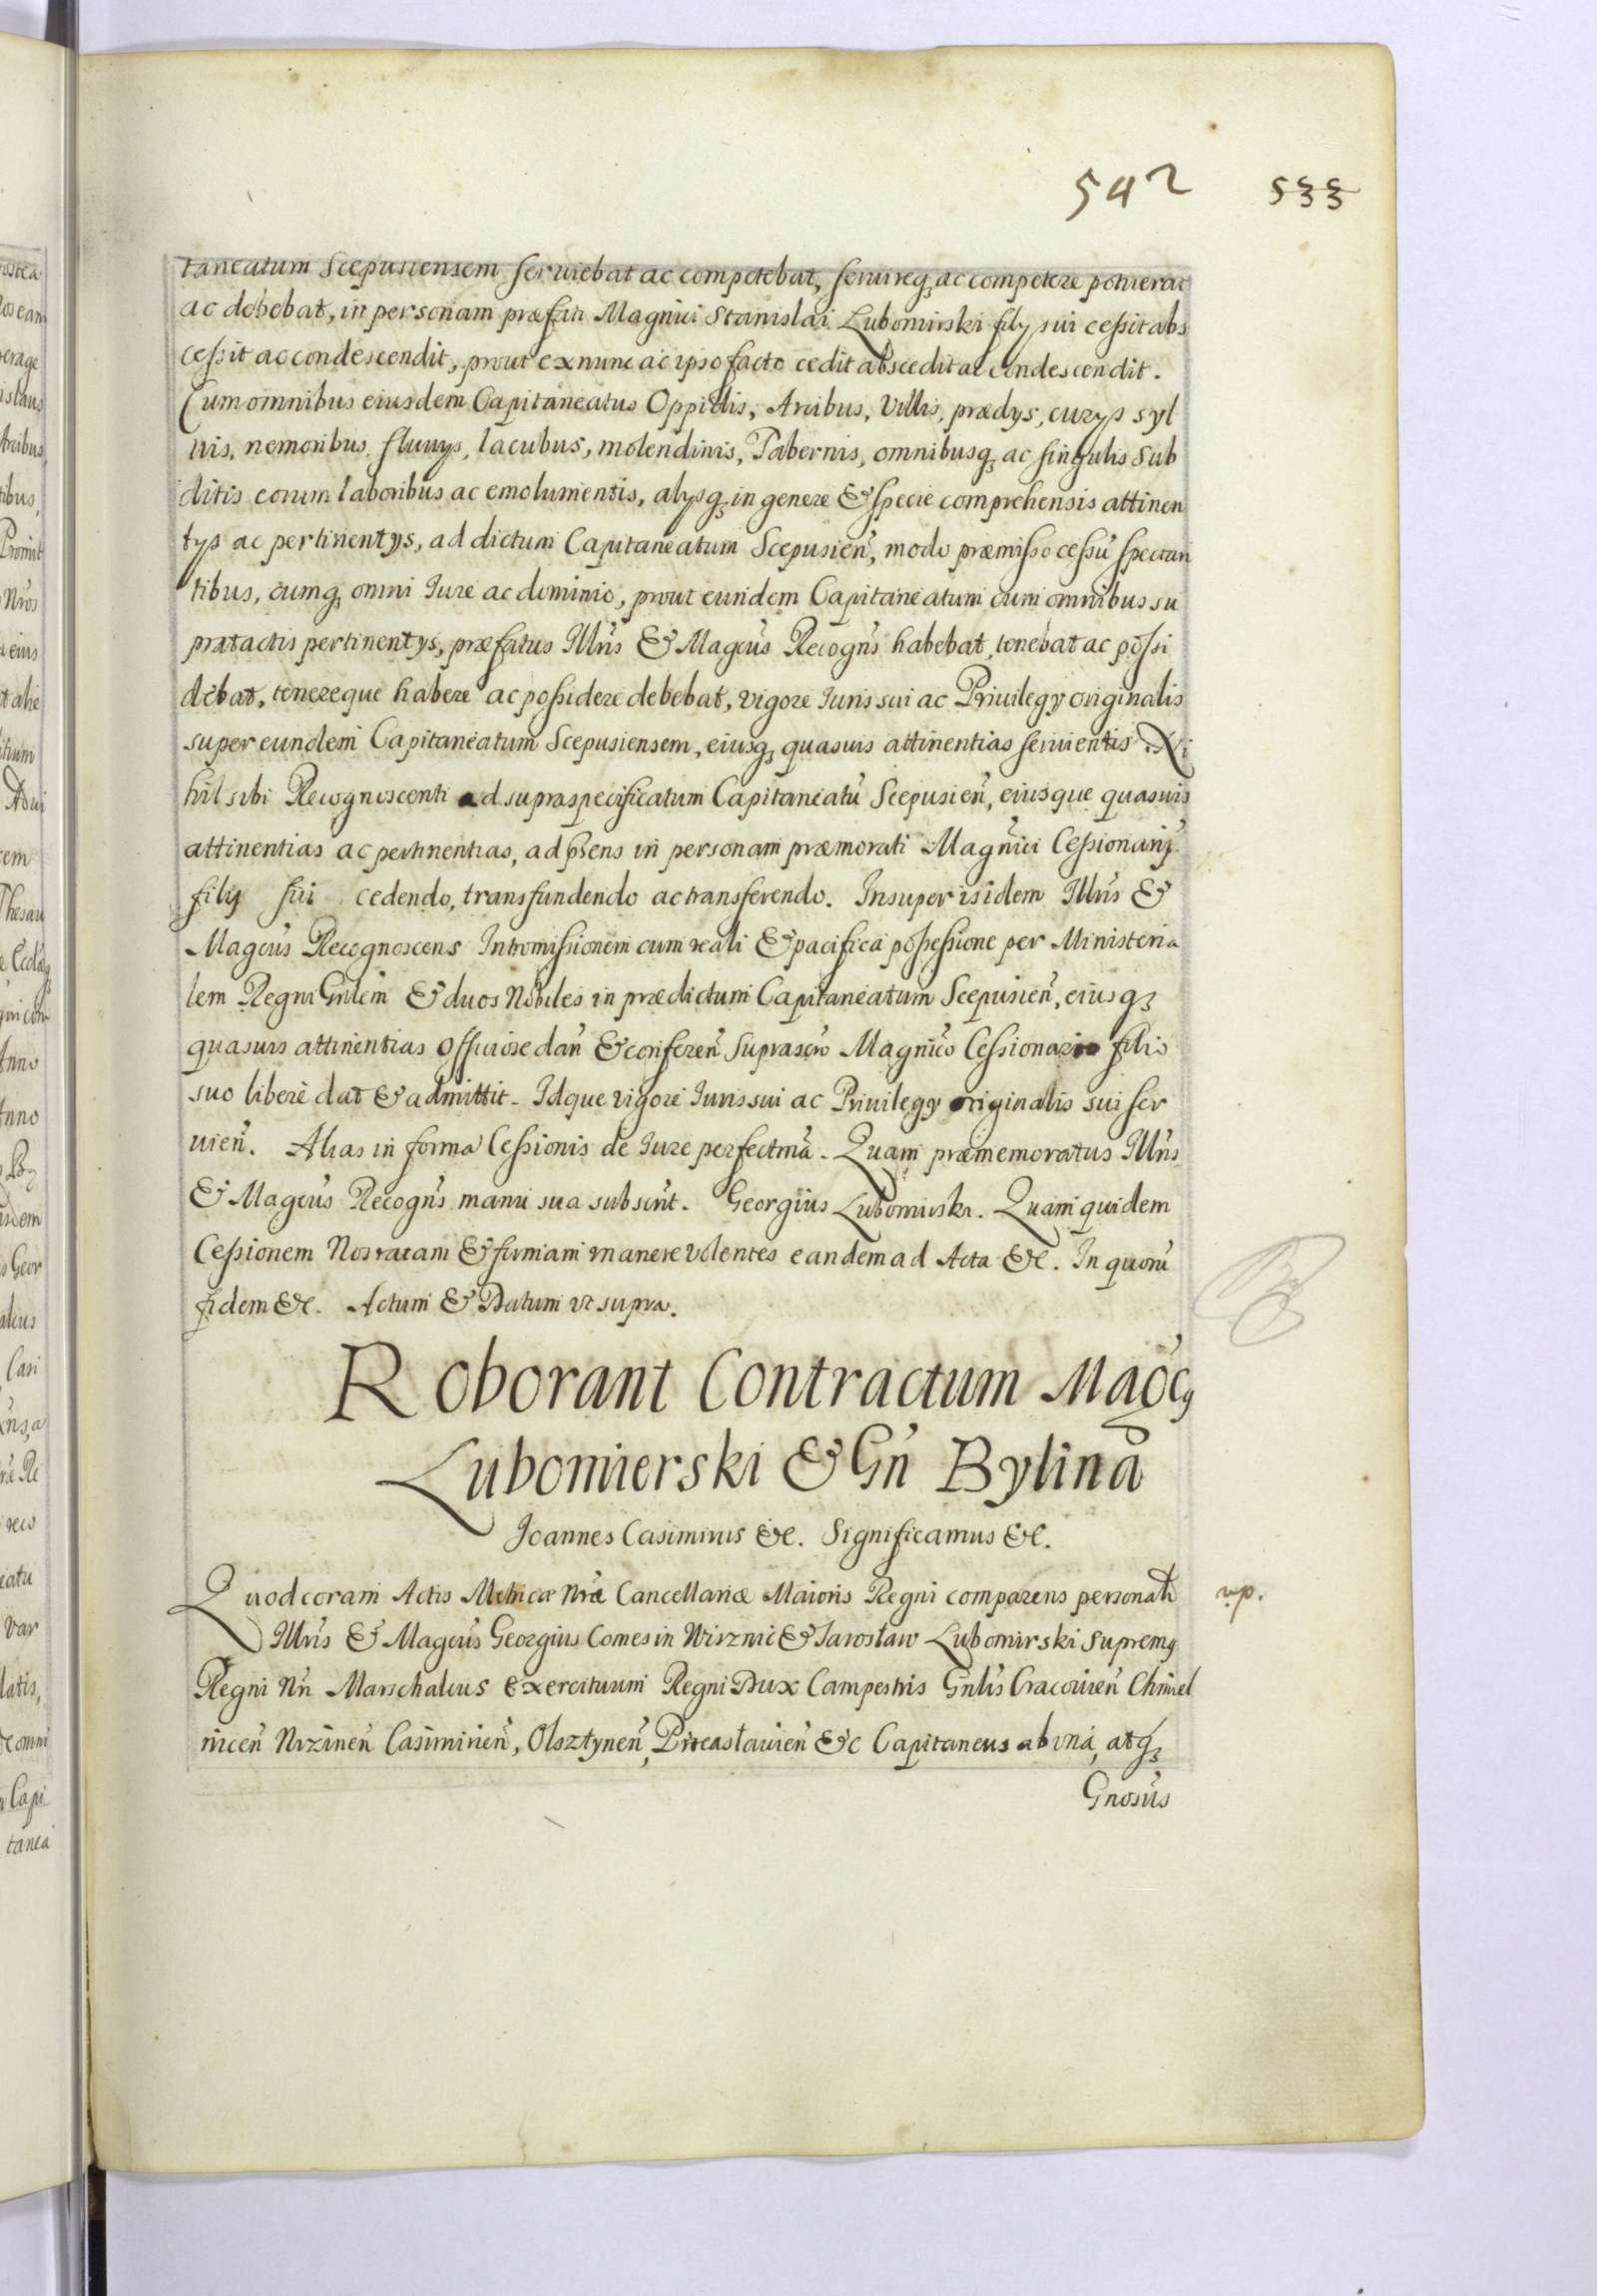 542 533
taneatum Scepusiensem seruiebat ac competebat, seruireq; ac competere potuerat
ac debebat, in personam præfati Magnici Stanislai Lubomirski filij sui cessit abs
cessit ac condescendit, prout ex nunc ac ipso facto cedit abscedit ac condescendit.
Cum omnibus eiusdem Capitaneatus Oppidis, Arcibus, Villis, prædijs, curijs syl
uis, nemoribus, fluuijs, lacubus, molendinis, Tabernis, omnibusq; ac singulis Sub
ditis eorum laboribus ac emolumentis, alijsq; in genere & specie comprehensis attinen
tijs ac pertinentijs, ad dictum Capitaneatum Scepusien̄, modo præmisso cessu spectan
tibus, cumq; omni Iure ac dominio, prout eundem Capitaneatum cum omnibus su
pratactis pertinentijs, præfatus Illr̄is & Magcūs Recogn̄s habebat, tenebat ac possi
debat, tenereque habere ac possidere debebat, vigore Iuris sui ac Priuilegij originalis
super eundem Capitaneatum Scepusiensem, eiusq; quasuis attinentias seruientis. Ni
hil sibi Recognoscenti ad supraspecificatum Capitaneatū Scepusien̄, eiusque quasuis
attinentias ac pertinentias, ad p̄sens in personam præmorati Magnici Cessionarij
filij sui cedendo, transfundendo ac transferendo. Insuper isidem Illr̄is &
Magcūs Recognoscens Intromissionem cum reali & pacifica possessione per Ministeria
lem Regni Gn̄lem & duos Nobiles in prædictum Capitaneatum Scepusien̄, eiusq;
quasuis attinentias officiose dan̄ & conferen̄ suprascr̄o Magnico Cessionario filio
suo libere dat & admittit. Idque vigore Iuris sui ac Priuilegij originalis sui ser
uien̄. Alias in forma Cessionis de Iure perfectmā. Quam præmemoratus Illr̄is
& Magcūs Recogn̄s manu sua subscr̄t. Georgius Lubomirski. Quam quidem
Cessionem Nos ratam & firmam manere volentes eandem ad Acta &c. In quorū
fidem &c. Actum & Datum vt supra.
Roborant Contractum Magci
Lubomierski & Gn̄ Bylina
Ioannes Casimirus &c. Significamus &c.
Quod coram Actis Metricæ Nr̄æ Cancellariæ Maioris Regni comparens personalr̄
Illr̄is & Magcūs Georgius Comes in Wisznic & Jarosław Lubomirski Supremq
Regni Nr̄i Marschalcus Exercituum Regni Dux Campestris Gn̄lis Cracouien̄ Chmiel
nicen̄ Nizinen̄ Casimirien̄, Olsztynen̄, Pereasłauien̄ &c Capitaneus ab vna, atq;
Gnosūs